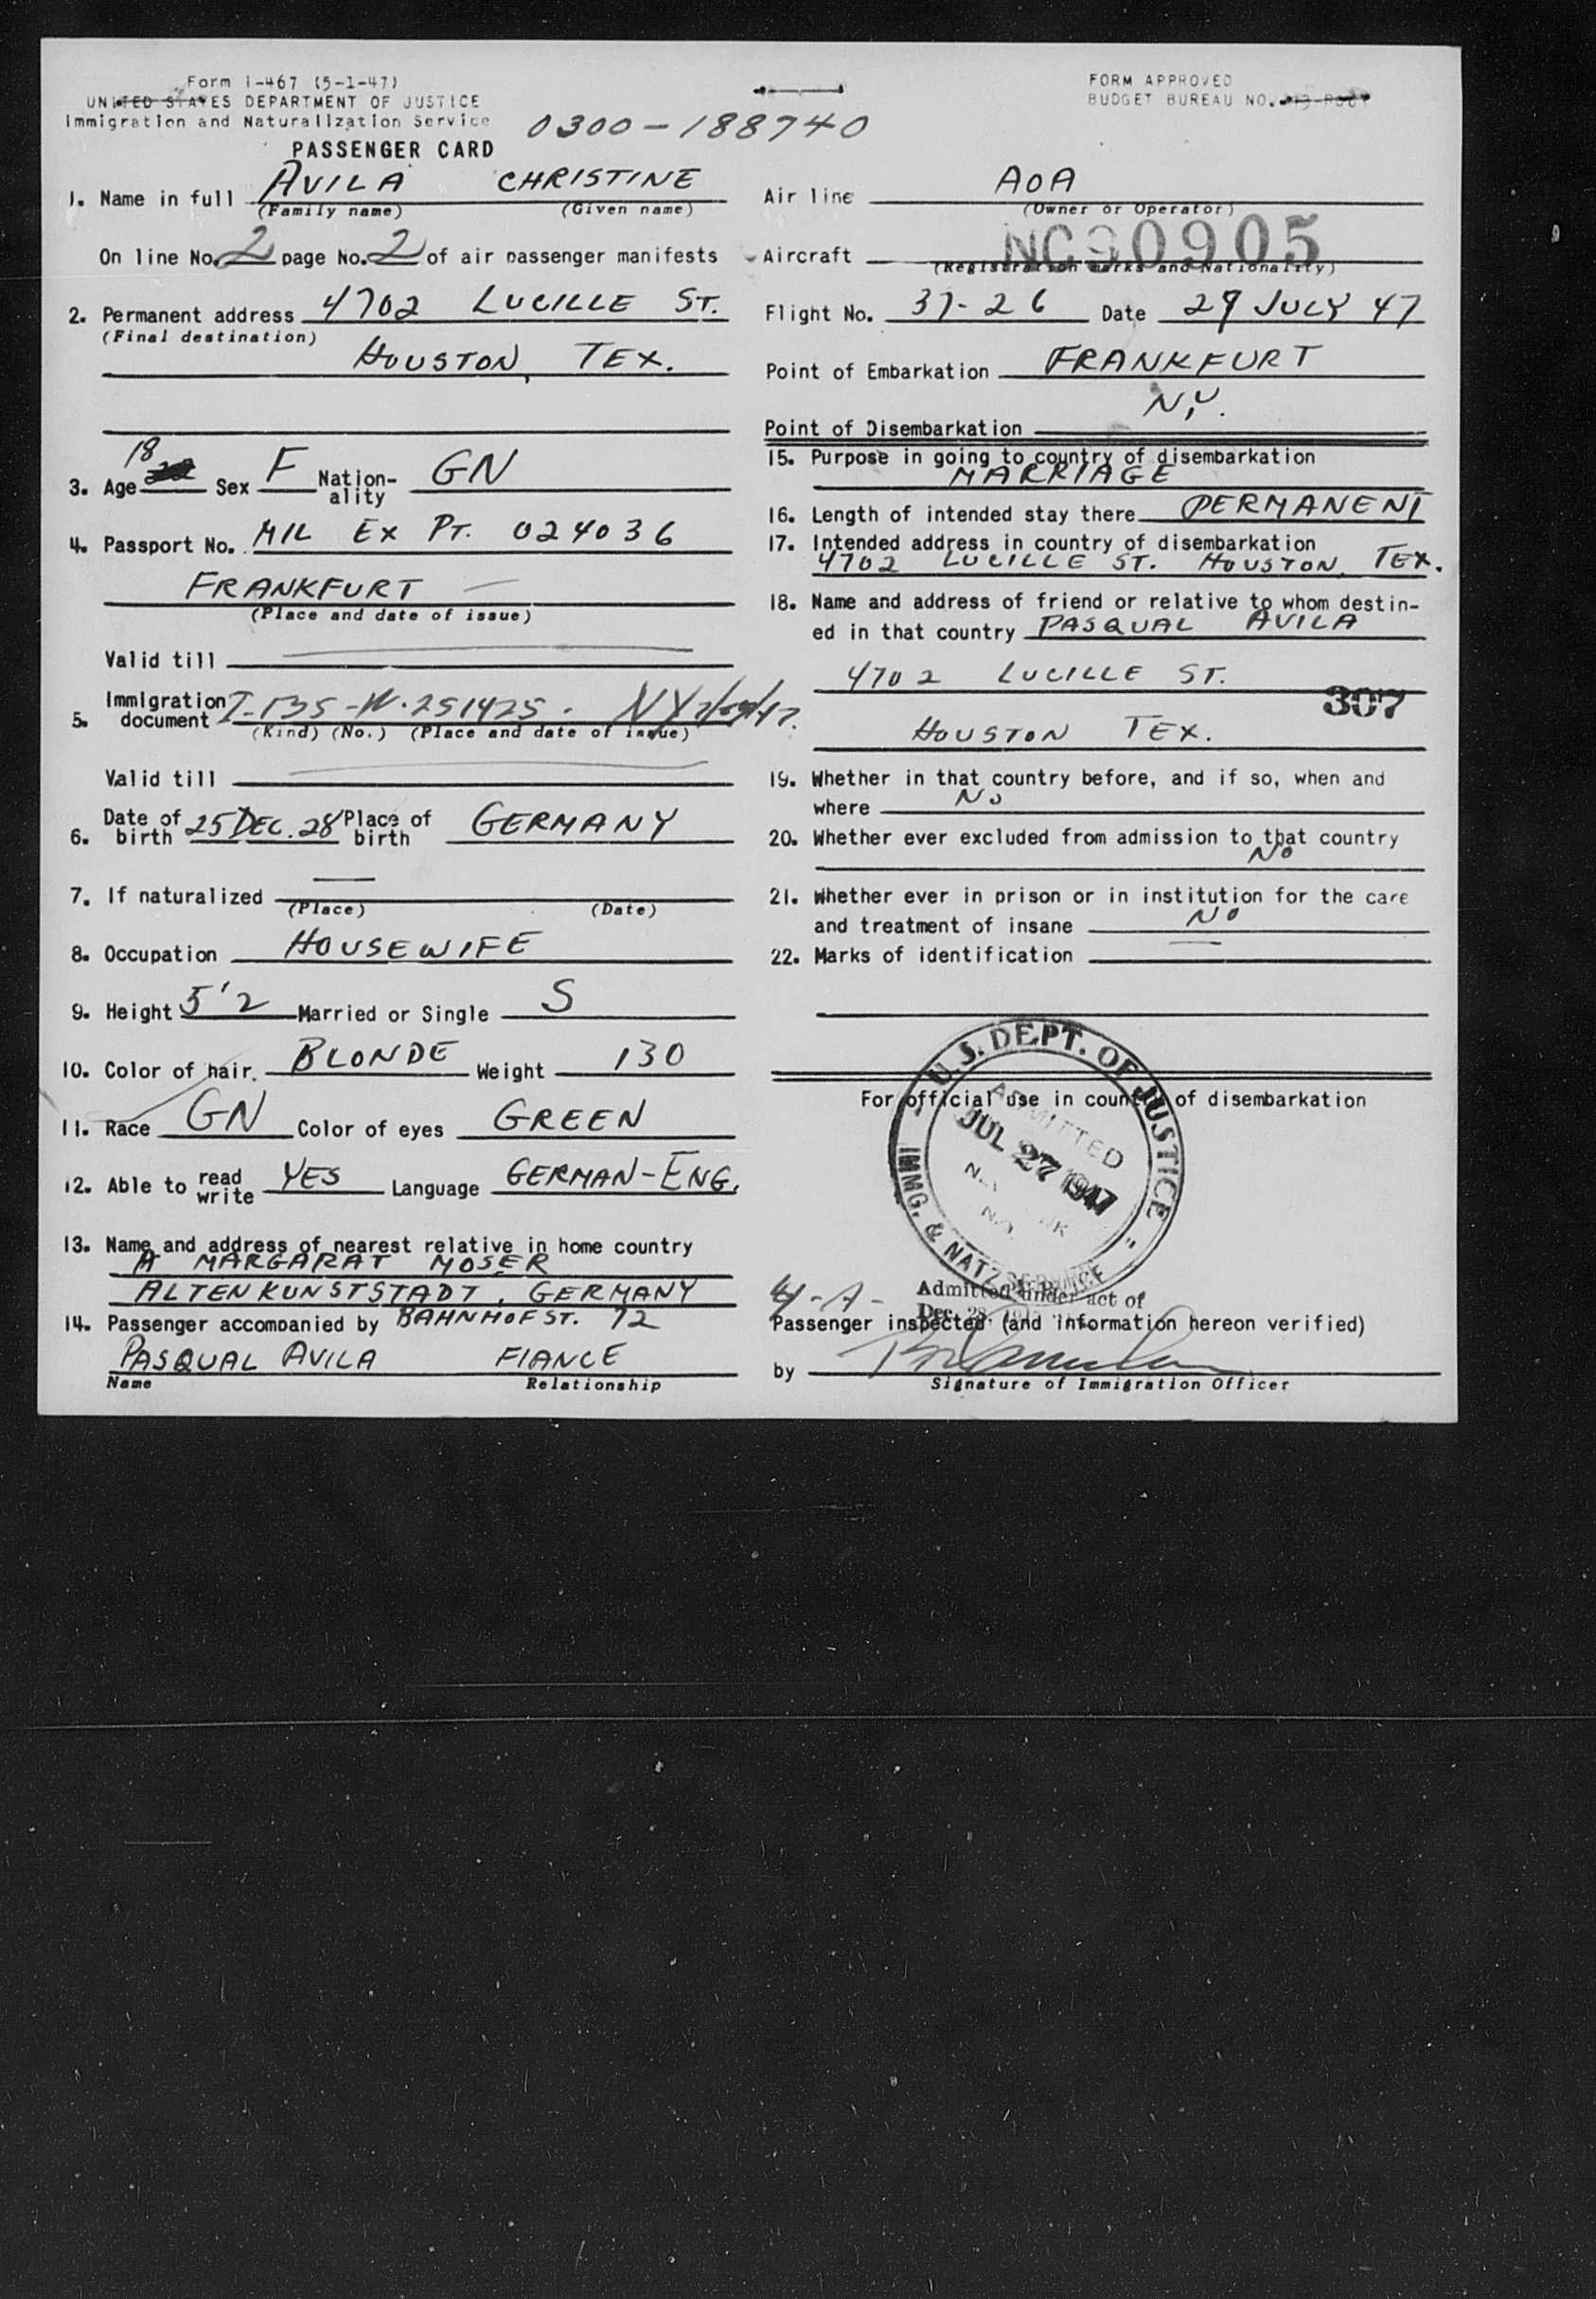 Form I-467 (5-1-47)
UNITED STATES DEPARTMENT OF JUSTICE
Immigration and Naturalization Service
PASSENGER CARD
0300-188740
FORM APPROVED
BUDGET BUREAU NO.
1. Name in full AVILA CHRISTINE
(Family name) (Given name)
On line No. 2 page No. 2 of air passenger manifests
2. Permanent address 4702 LUCILLE ST.
(Final destination)
HOUSTON, TEX.
3. Age 18 Sex F Nation-ality GN
4. Passport No. MIL EX PT. 024036
FRANKFURT —
(Place and date of issue)
Valid till
5. Immigration document I-135-N-251425. NY
(Kind) (No.) (Place and date of issue)
Valid till
6. Date of birth 25 DEC. 28 Place of birth GERMANY
7. If naturalized —
(Place) (Date)
8. Occupation HOUSEWIFE
9. Height 5'2 Married or Single S
10. Color of hair. BLONDE Weight 130
11. Race GN Color of eyes GREEN
12. Able to read write YES Language GERMAN-ENG.
13. Name and address of nearest relative in home country
A MARGARAT MOSER
ALTENKUNSTSTADT, GERMANY
BAHNHOFST. 72
14. Passenger accompanied by
PASQUAL AVILA FIANCE
Name Relationship
Air line AOA
(Owner or Operator)
Aircraft NC90905
(Registration marks and Nationality)
Flight No. 37-26 Date 29 JULY 47
Point of Embarkation FRANKFURT
Point of Disembarkation N.Y.
15. Purpose in going to country of disembarkation
MARRIAGE
16. Length of intended stay there PERMANENT
17. Intended address in country of disembarkation
4702 LUCILLE ST. HOUSTON, TEX.
18. Name and address of friend or relative to whom destin-
ed in that country PASQUAL AVILA
4702 LUCILLE ST.
307
HOUSTON TEX.
19. Whether in that country before, and if so, when and
where NO
20. Whether ever excluded from admission to that country
NO
21. Whether ever in prison or in institution for the care
and treatment of insane NO
22. Marks of identification —
For official use in country of disembarkation
U.S. DEPT. OF JUSTICE
ADMITTED
JUL 27 1947
IMMG. & NATZ. SERVICE
4-A-
Admitted under act of
Dec. 28,
Passenger inspected (and information hereon verified)
by
Signature of Immigration Officer